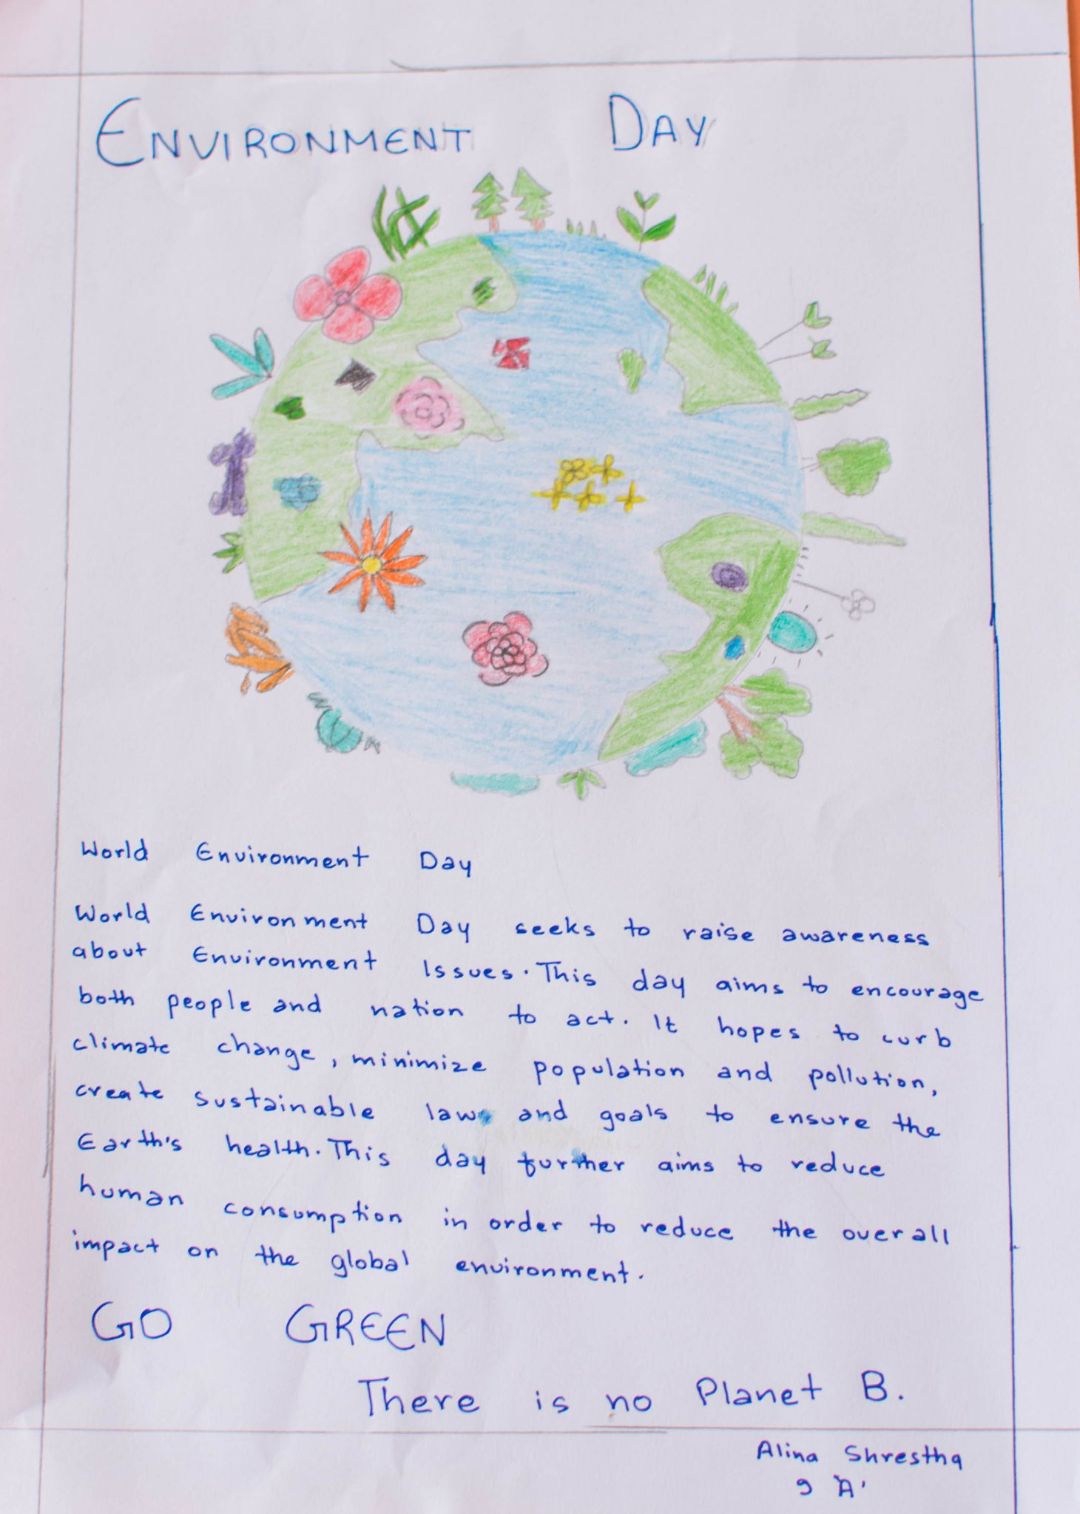 ENVIRONMENT DAY
World Environment Day
World Environment Day seeks to raise awareness
about Environment Issues. This day aims to encourage
both people and nation to act. It hopes to curb
climate change, minimize population and pollution,
create sustainable laws and goals to ensure the
Earth's health. This day further aims to reduce
human consumption in order to reduce the overall
impact on the global environment.
GO GREEN
There is no Planet B.
Alina Shrestha
9 'A'